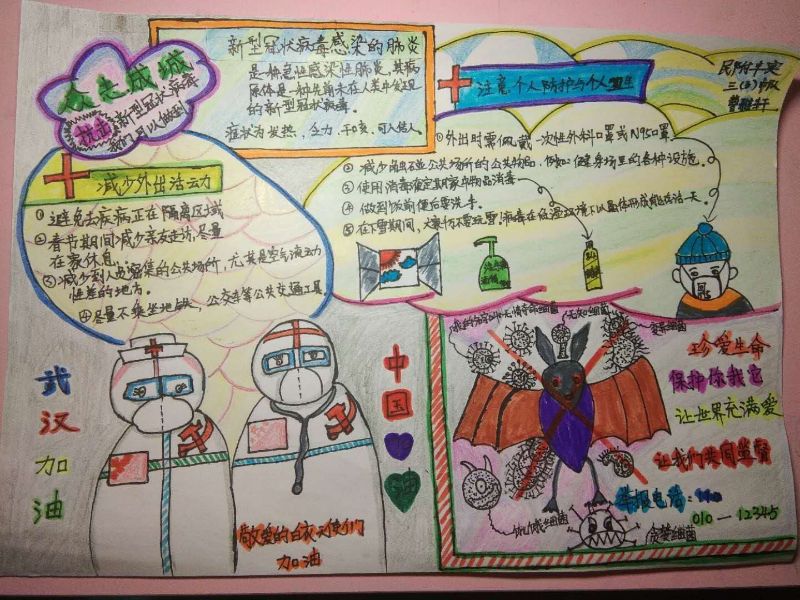 众志成城
抗击新型冠状病毒
我们可以做到
新型冠状病毒感染的肺炎
是一种急性感染性肺炎,其病
原体是一种先前未在人类中发现
的新型冠状病毒。
症状为发热,乏力,干咳,可人传人。
注意个人防护与个人卫生
民附半实
三(3)
①外出时需佩戴一次性外科口罩或N95口罩
②减少触碰公共场所的公共物品,例如健身场里的各种设施。
③使用消毒液定期家中物品消毒
④做到饭前便后要洗手。
⑤在下雪期间,大家切不要玩雪!病毒在低温环境下以晶体形式能存活一天。
减少外出活动
①避免去疾病正在隔离区域
②春节期间减少亲友走访,尽量
在家休息。
③减少到人员密集的公共场所,尤其是空气流动
性差的地方。
④尽量不乘坐地铁,公交车等公共交通工具
武汉加油
中国加油
敬爱的白衣天使们
加油
无知细菌
变异细菌
饥饿细菌
贪婪细菌
珍爱生命
保护你我他
让世界充满爱
让我们共同监督
举报电话:110
010—12345